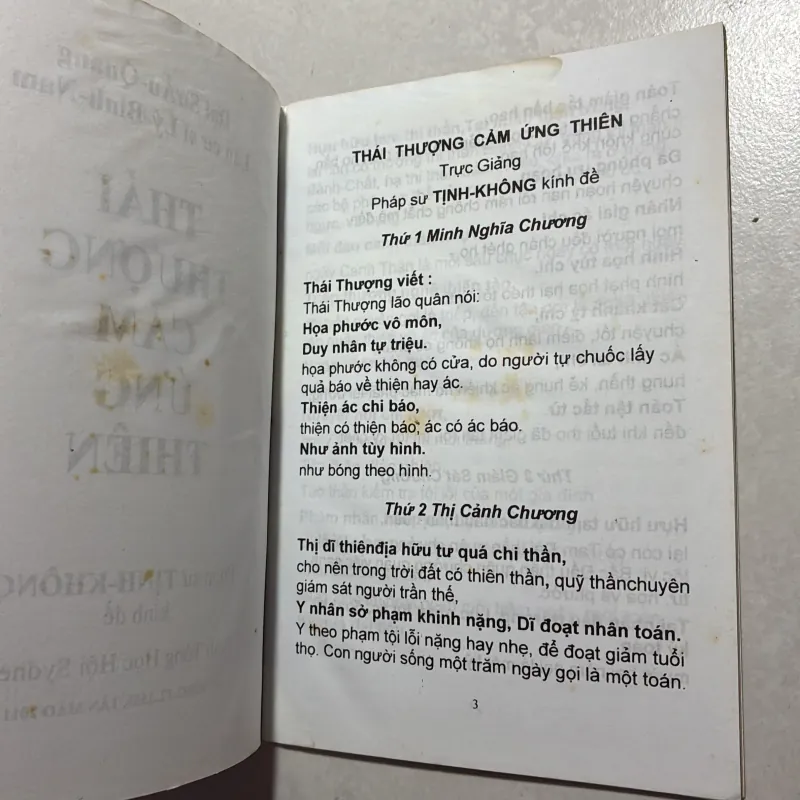 THÁI THƯỢNG CẢM ỨNG THIÊN
Trực Giảng
Pháp sư TỊNH-KHÔNG kính đề
Thứ 1 Minh Nghĩa Chương
Thái Thượng viết :
Thái Thượng lão quân nói:
Họa phước vô môn,
Duy nhân tự triệu.
họa phước không có cửa, do người tự chuốc lấy
quả báo về thiện hay ác.
Thiện ác chi báo,
thiện có thiện báo; ác có ác báo.
Như ảnh tùy hình.
như bóng theo hình.
Thứ 2 Thị Cảnh Chương
Thị dĩ thiênđịa hữu tư quá chi thần,
cho nên trong trời đất có thiên thần, quỹ thầnchuyên
giám sát người trần thế,
Y nhân sở phạm khinh nặng, Dĩ đoạt nhân toán.
Y theo phạm tội lỗi nặng hay nhẹ, để đoạt giảm tuổi
thọ. Con người sống một trăm ngày gọi là một toán.
3